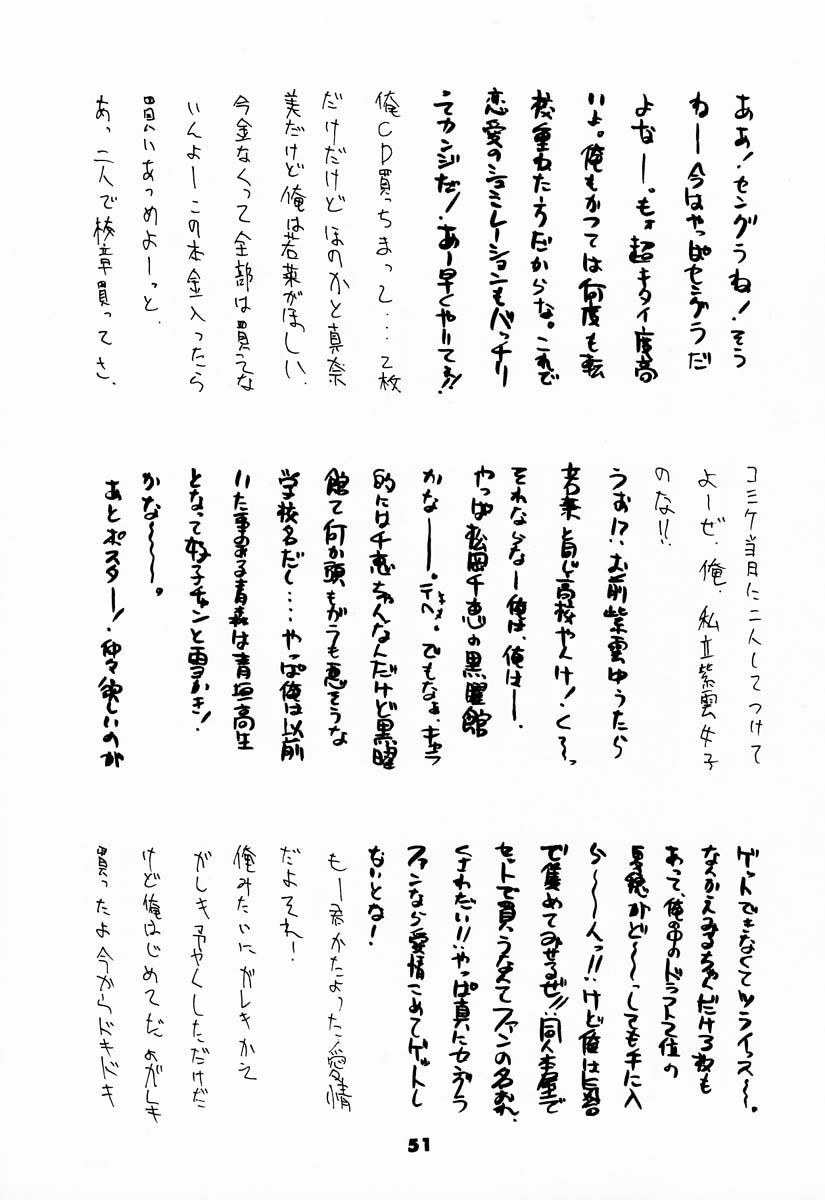 ああ!セングラね!そう
ねー今はやっぱセングラだ
よなー。もォ超キタイ度高
いよ。俺もかつては何度も転
校重ねたうだからな。これで
恋愛のシュミレーションもバッチリ
てカンジだ!あー早くやりてぇ!
俺CD買っちまって…2枚
だけだけど ほのかと真奈
美だけど俺は若菜がほしい.
今金なくって全部は買えな
いんよーこの本金入ったら
買いあつめよーっと.
あっ二人で校章買ってさ、
コミケ当日に二人してつけて
よーぜ、俺、私立紫雲女子
のな!!
うお!?お前紫雲ゆうたら
若菜と同じ高校やんけ!く〜っ
それならなー俺は、俺はー、
やっぱ松岡千恵の黒曜館
かなー。テヘ。でもなぁ、キャラ
的には千恵ちゃんなんだけど黒曜
館て何か頭もガラも悪そうな
学校名だし…やっぱ俺は以前
いた事のある青森は青垣高生
となって妙子チャンと雪かき!
かな〜〜。
あとポスター!仲々欲しいのが
ゲットできなくてツライス〜〜。
なんかえみるちゃんだけ3枚も
あって、俺の中のドラフト2位の
夏穂がど〜〜っしても手に入
ら〜〜んっ!!けど俺は
で集めてみせるぜ!!同人本屋で
セットで買うなんてファンの名おれ、
くさわたい!!やっぱ真にセングラ
ファンなら愛情こめてゲットし
ないとな!
もー君かたよった愛情
だよそれー!
俺みたいに ガレキかえ
ガレキ予やくしただけだ
けど俺はじめてだよガレキ
買ったよ今からドキドキ
51